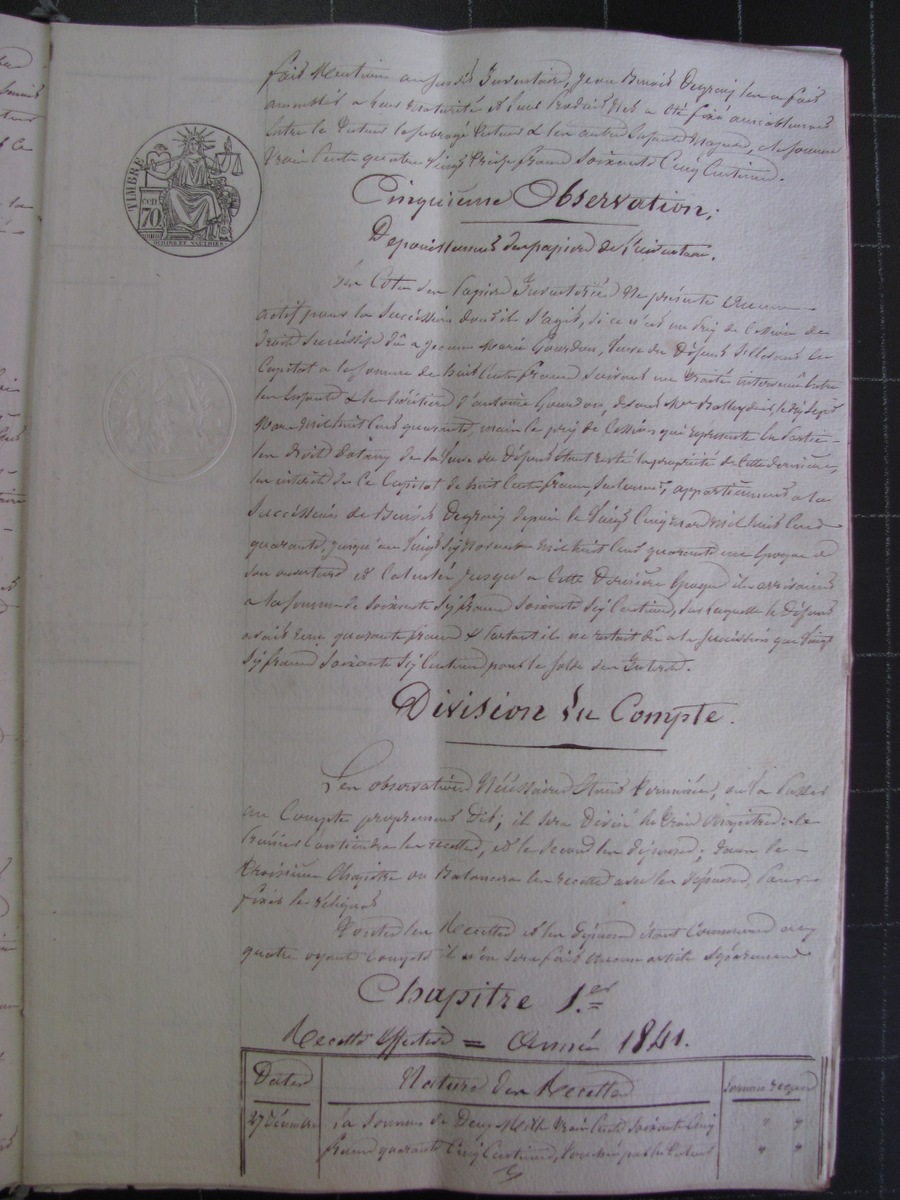 fait mention au susdit Inventaire, Jean Benoit
a leur maturité et leur produit net a été fixé amiablement
entre le Tuteur le subrogé Tuteur & les autres enfants Majeurs, à la somme
trois cents quatre vingt treize francs soixante cinq centimes.
TIMBRE
CEN
70
Cinquième Observation;
Dépouillement des papiers de l'inventaire.
Les Cotes des Papiers Inventoriés Ne présente Aucun
actif pour la Succession dont il s'agit, si ce n'est un prix de Cession de
droits Successifs dû a Jeanne Marie Gourdon, Veuve du Défunt
Capital a la somme de huit Cents francs suivant un Traité intervenu Entre
les Enfants & héritiers d'antoine Gourdon, devant Me
Mars Mil huit Cent quarante, mais le prix de Cession qui représente En Partie
les droits dotaux de la Veuve du Défunt étant resté la propriété de Cette dernière,
les intérêts de Ce Capital de huit Cents francs, seulement, appartiennent a la
Succession de Benoit depuis le Vingt Cinq Mars Mil huit Cent
quarante, jusqu'au Vingt Six Novembre Mil huit Cent quarante un Epoque de
son ouverture et Calculés jusqu'a Cette Dernière Epoque ils arrivaient
a la somme de Soixante Six francs Soixante Six Centimes, sur laquelle le Défunt
avait reçu quarante francs & Partant il ne restait dû a la succession que Vingt
Six francs Soixante Six Centimes pour le solde des Intérêts.
Division du Compte.
Les observations Nécessaires étant Terminées, on va Passer
au Compte proprement Dit; il sera Divisé En trois Chapitres: le
Premier Contiendra les recettes, et le Second les dépenses; dans le
Troisième Chapitre on Balancera les recettes avec les dépenses, Pour
fixer le reliquat
Toutes les Recettes et les dépenses étant Communes aux
quatre oyants Compte il n'en sera fait Aucun article séparément
Chapitre 1.er
Recettes Effectives = Année 1841.
Dates
Nature des Recettes
Sommes reçues
27 Décembre
La Somme de Deux Mille trois Cents Soixante Cinq
" "
francs quarante Cinq Centimes, touchée par le Tuteur
" "